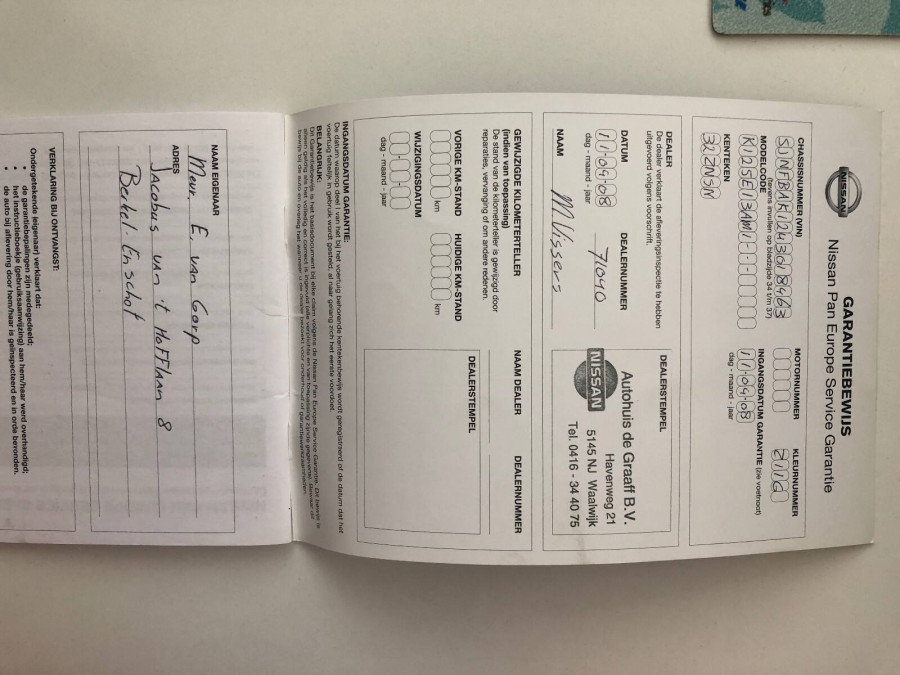 GARANTIEBEWIJS
Nissan Pan Europe Service Garantie
NISSAN
CHASSISNUMMER (VIN)
(tevens invullen op bladzijde 34 t/m 37)
MOTORNUMMER
KLEURNUMMER
MODELCODE
INGANGSDATUM GARANTIE (zie voetnoot)
11-09-08
dag - maand - jaar
KENTEKEN
32ZNSN
DEALER
De dealer verklaart de afleveringsinspectie te hebben
uitgevoerd volgens voorschrift.
DATUM
DEALERNUMMER
11-09-08
71040
dag - maand - jaar
NAAM
M. Vissers
DEALERSTEMPEL
Autohuis de Graaff B.V.
Havenweg 21
5145 NJ Waalwijk
Tel. 0416 - 34 40 75
NISSAN
GEWIJZIGDE KILOMETERTELLER
(indien van toepassing)
De stand van de kilometerteller is gewijzigd door
reparaties, vervanging of om andere redenen.
VORIGE KM-STAND
HUIDIGE KM-STAND
km
km
WIJZIGINGSDATUM
dag - maand - jaar
NAAM DEALER
DEALERNUMMER
DEALERSTEMPEL
INGANGSDATUM GARANTIE:
De datum waarop deel I van het bij het voertuig behorende kentekenbewijs wordt geregistreerd of de datum dat het
voertuig feitelijk in gebruik wordt gesteld, al naar gelang zich het eerste voordoet.
BELANGRIJK:
NAAM EIGENAAR
Mevr. E. van Gorp
ADRES
Jacobus van 't Hofflaan 8
Berkel-Enschot
VERKLARING BIJ ONTVANGST:
Ondergetekende (eigenaar) verklaart dat:
• de garantiebepalingen zijn medegedeeld;
• het instructieboekje (gebruiksaanwijzing) aan hem/haar werd overhandigd;
• de auto bij aflevering door hem/haar is geïnspecteerd en in orde bevonden.